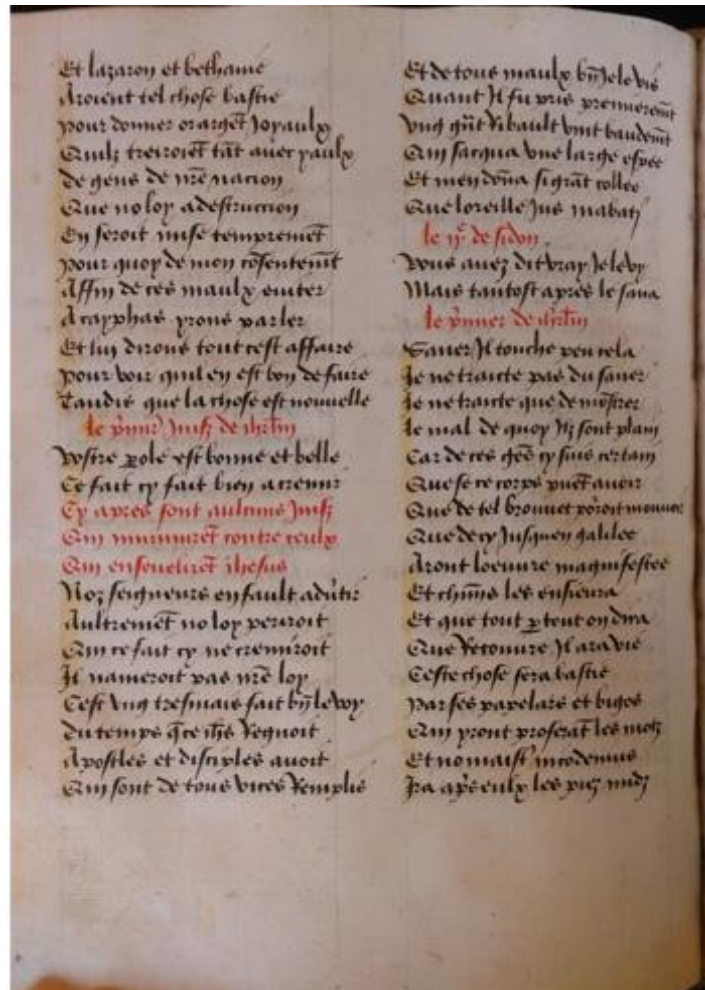 Et lazaron et bethanie
Aroient tel chose bastie
pour donner or argēt Joyaulx
Quilz trairoiēt tāt avec yaulx
De gens de nr̄e nacion
Que no loy a destruccion
En seroit mise tempremēt
pour quoy de mon cōsentemēt
Affin de ces maulx eviter
A cayphas yrons parler
Et lui dirons tout cest affaire
pour voir quil en est bon de faire
Tandis que la chose est nouvelle
le pmier Juif de ihrlm̄
Vostre ꝑole est bonne et belle
Ce fait cy fait bien a cremir
Cy apres sont aulcuns Juifz
Qui murmurēt contre ceulx
Qui ensevelirēt ihesus
Noz seigneurs en fault advtir
Aultremēt no loy periroit
Qui ce fait cy ne cremiroit
Il nameroit pas nr̄e loy
Cest ung tresmais fait bn̄ le voy
Du temps q̄ce ih̄s Regnoit
Apostles et disciples avoit
Qui sont de tous vices Remplis
Et de tous maulx bn̄ Je le vis
Quant Il fu pris premieremēt
Ung gn̄t Ribault vint baudemēt
Qui sacqua une large espee
Et men dōna si grāt collee
Que loreille Jus mabati
le ije de sidon
Vous avez dit vray Je le vy
Mais tantost apres le sana
le pmier de ihrlm̄
Saner Il touche peu cela
Je ne traicte pas du saner
Je ne traicte que de mōstrer
Le mal de quoy Ilz sont plain
Car de ces gēs cy suis certain
Que se ce corps pueēt avoir
Que de tel brouuet pōroit mouvoir
Que de cy Jusquen galilee
Aront loeuvre magnifestee
Et chūns les ensievra
Et que tout ꝑtout on dira
Que Retourne Il a ra vie
Ceste chose sera bastie
Par ses papelars et bigos
Qui yront proferāt les motz
Et no maistr nicodemus
Ira aps eulx les piez nudz